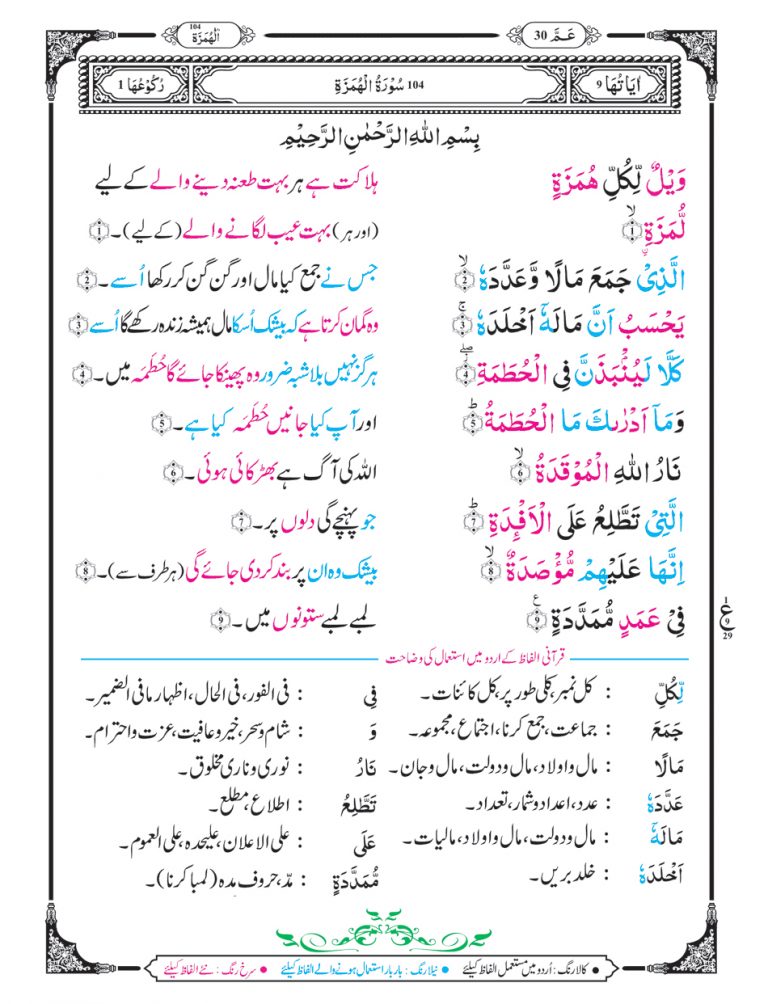 عَمَّ 30
104 اَلْهُمَزَة
اٰيَاتُهَا 9
104 سُوْرَةُ الْهُمَزَةِ
رُكُوْعُهَا 1
بِسْمِ اللّٰهِ الرَّحْمٰنِ الرَّحِيْمِ
وَيْلٌ لِّكُلِّ هُمَزَةٍ ہلاکت ہے ہر بہت طعنہ دینے والے کے لیے
لُّمَزَةِ ۙ﴿1﴾ (اور ہر) بہت عیب لگانے والے (کے لیے)۔ ﴿1﴾
الَّذِيْ جَمَعَ مَالًا وَّعَدَّدَهٗ ۙ﴿2﴾ جس نے جمع کیا مال اور گن گن کر رکھا اُسے۔ ﴿2﴾
يَحْسَبُ اَنَّ مَالَهٗٓ اَخْلَدَهٗ ۚ﴿3﴾ وہ گمان کرتا ہے کہ بیشک اُسکا مال ہمیشہ زندہ رکھے گا اُسے ﴿3﴾
كَلَّا لَيُنْۢبَذَنَّ فِي الْحُطَمَةِ ۖ﴿4﴾ ہرگز نہیں بلاشبہ ضرور وہ پھینکا جائے گا حُطَمَہ میں۔ ﴿4﴾
وَمَآ اَدْرٰىكَ مَا الْحُطَمَةُ ؕ﴿5﴾ اور آپ کیا جانیں حُطَمَہ کیا ہے۔ ﴿5﴾
نَارُ اللّٰهِ الْمُوْقَدَةُ ۙ﴿6﴾ اللہ کی آگ ہے بھڑکائی ہوئی۔ ﴿6﴾
الَّتِيْ تَطَّلِعُ عَلَى الْاَفْـِٕدَةِ ؕ﴿7﴾ جو پہنچے گی دلوں پر۔ ﴿7﴾
اِنَّهَا عَلَيْهِمْ مُّؤْصَدَةٌ ۙ﴿8﴾ بیشک وہ ان پر بند کر دی جائے گی (ہر طرف سے)۔ ﴿8﴾
فِيْ عَمَدٍ مُّمَدَّدَةٍ ࣖ﴿9﴾ لمبے لمبے ستونوں میں۔ ﴿9﴾
1
ع
9
29
قرآنی الفاظ کے اردو میں استعمال کی وضاحت
لِّكُلِّ : کل نمبر، کلی طور پر، کل کائنات۔ فِي : فی الفور، فی الحال، اظہار مافی الضمیر۔
جَمَعَ : جماعت، جمع کرنا، اجتماع، مجموعہ۔ وَ : شام و سحر، خیر و عافیت، عزت و احترام۔
مَالًا : مال و اولاد، مال و دولت، مال و جان۔ نَارُ : نوری و ناری مخلوق۔
عَدَّدَهٗ : عدد، اعداد و شمار، تعداد۔ تَطَّلِعُ : اطلاع، مطلع۔
مَالَهٗٓ : مال و دولت، مال و اولاد، مالیات۔ عَلَى : علی الاعلان، علیحدہ، علی العموم۔
اَخْلَدَهٗ : خلد بریں۔ مُّمَدَّدَةٍ : مدّ، حروف مدہ (لمبا کرنا)۔
● کالا رنگ : اُردو میں مستعمل الفاظ کیلئے ● نیلا رنگ : بار بار استعمال ہونے والے الفاظ کیلئے ● سرخ رنگ : نئے الفاظ کیلئے